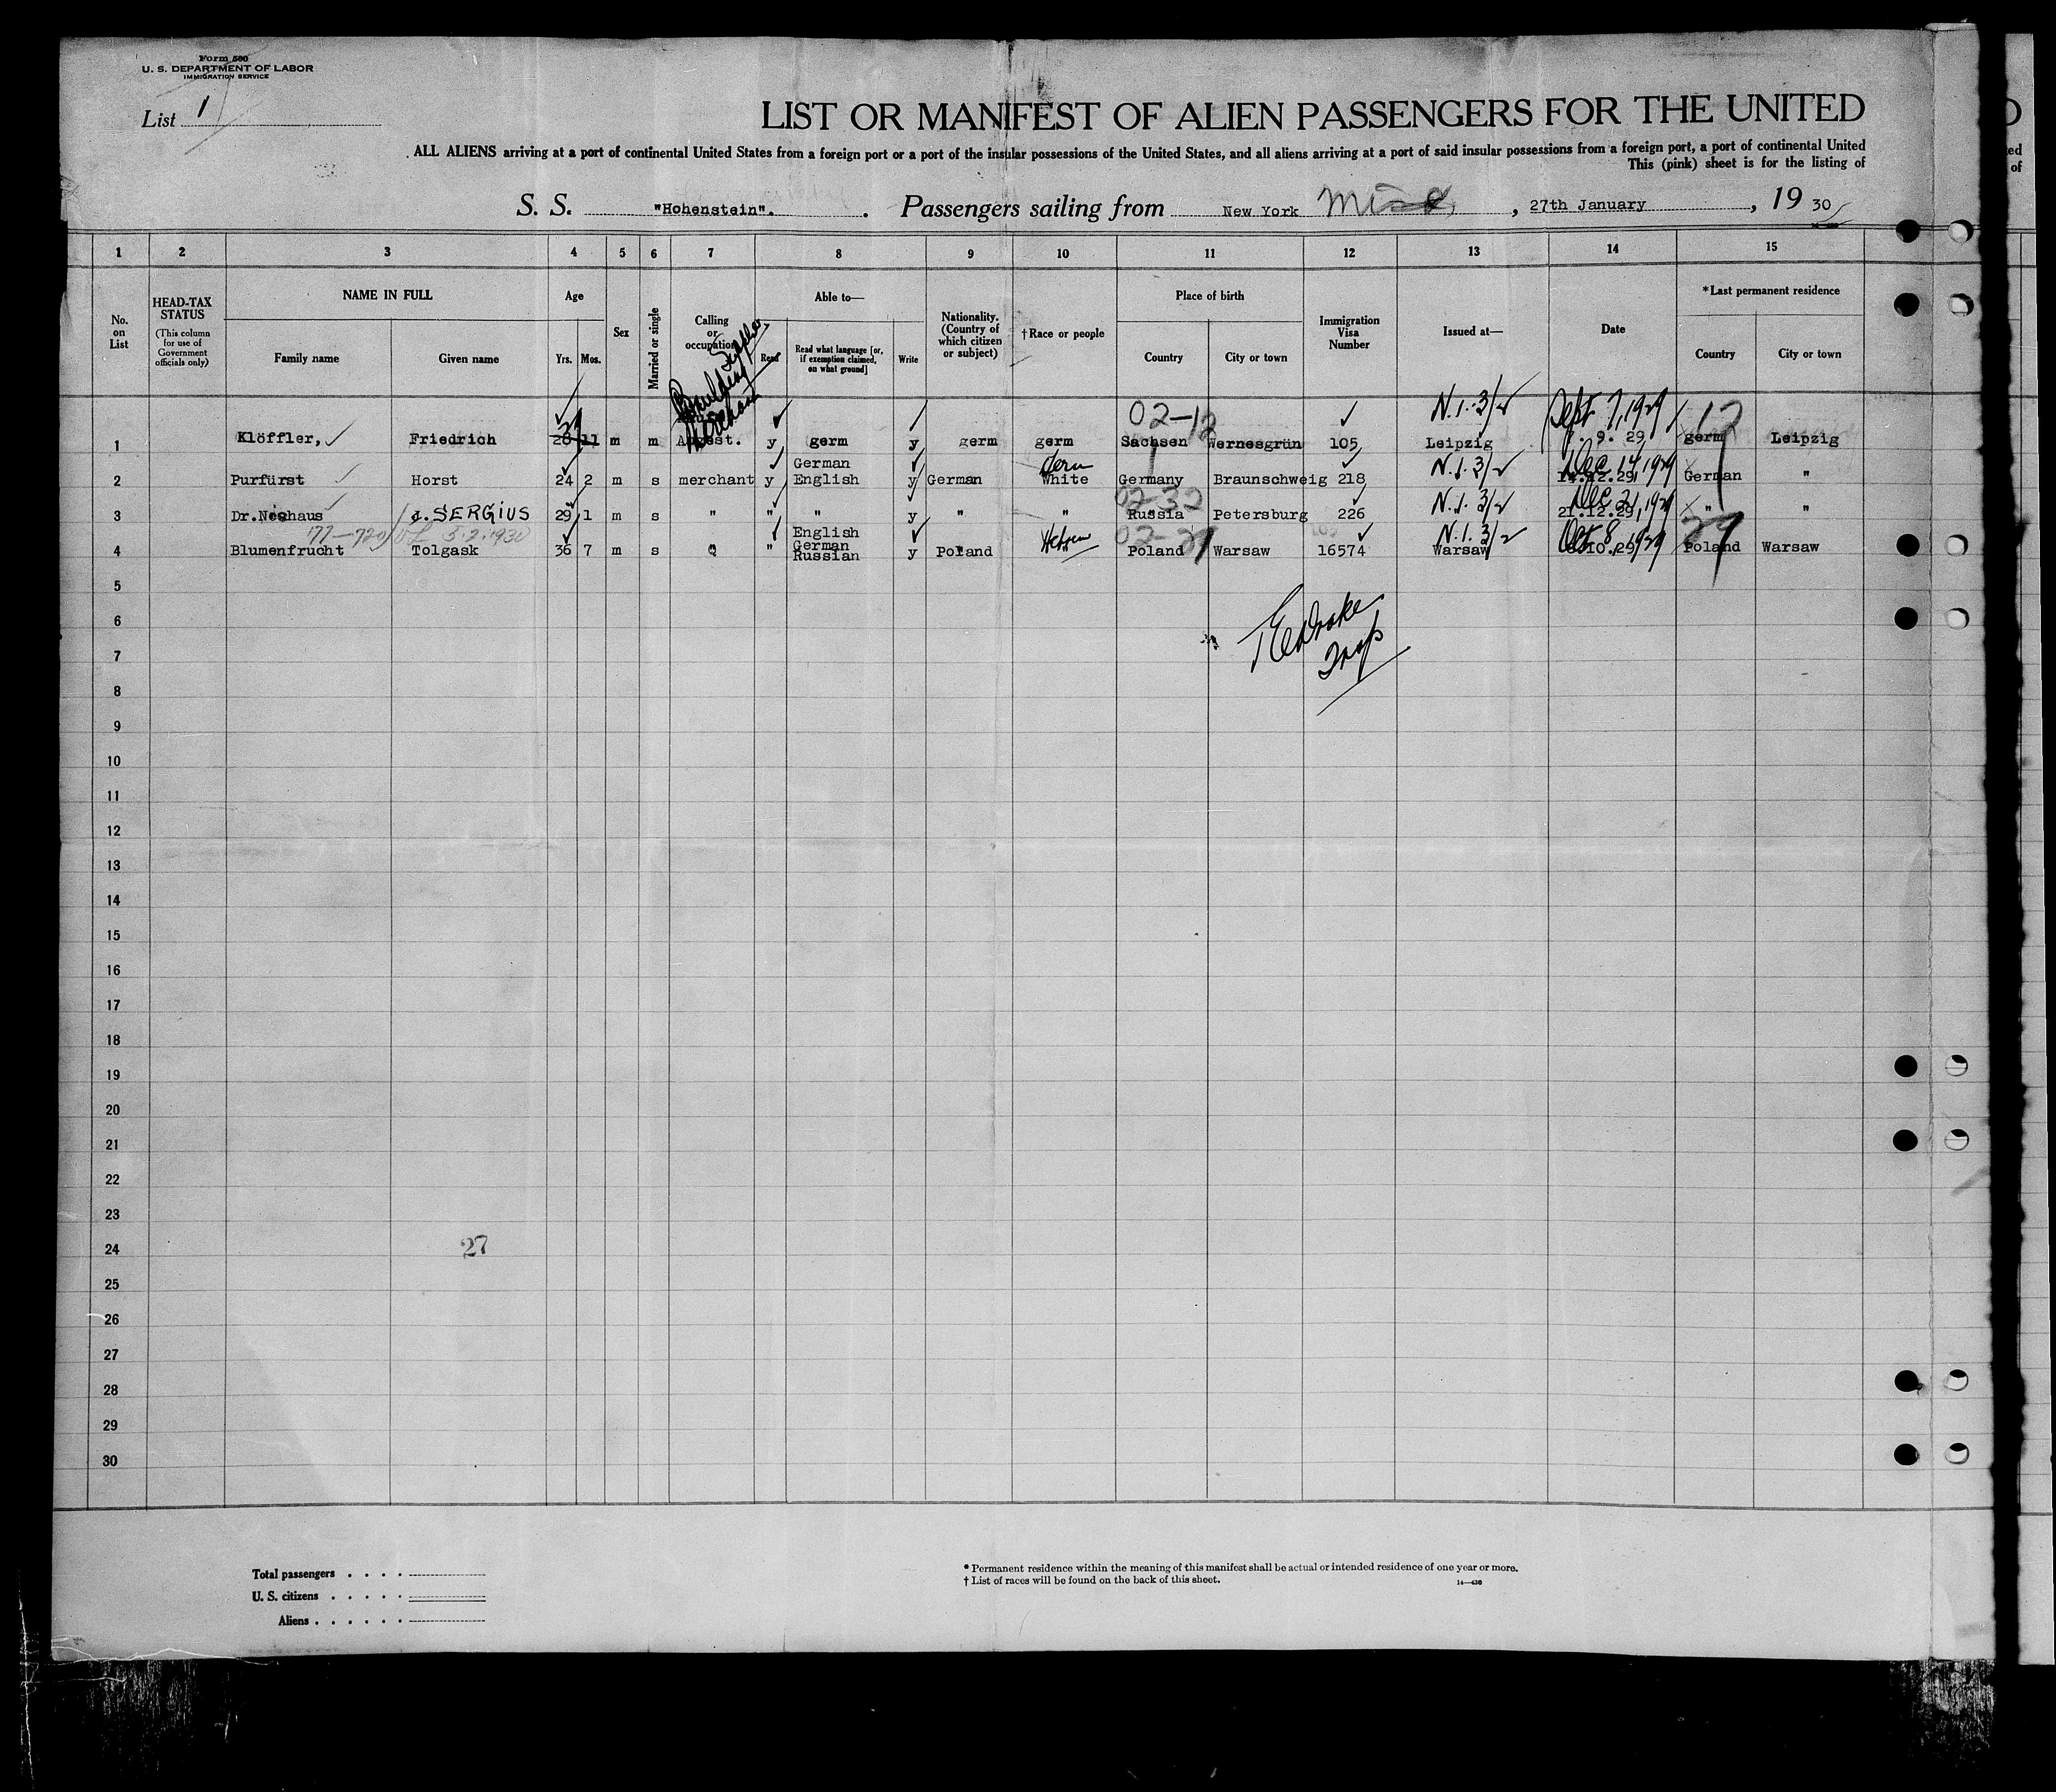 Form 500
U. S. DEPARTMENT OF LABOR
IMMIGRATION SERVICE
List 1
LIST OR MANIFEST OF ALIEN PASSENGERS FOR THE UNITED
ALL ALIENS arriving at a port of continental United States from a foreign port or a port of the insular possessions of the United States, and all aliens arriving at a port of said insular possessions from a foreign port, a port of continental United
This (pink) sheet is for the listing of
S. S. "Hohenstein". Passengers sailing from New York, 27th January, 19 30
1 2 3 4 5 6 7 8 9 10 11 12 13 14 15
No. on List
HEAD-TAX STATUS
(This column for use of Government officials only)
NAME IN FULL
Family name
Given name
Age
Yrs. Mos.
Sex
Married or single
Calling or occupation
Able to—
Read
Read what language [or, if exemption claimed, on what ground]
Write
Nationality. (Country of which citizen or subject)
†Race or people
Place of birth
Country
City or town
Immigration Visa Number
Issued at—
Date
*Last permanent residence
Country
City or town
02-12 N.1.3/2 Sept. 7, 1929 12
1 Klöffler, Friedrich 28 11 m m y germ y germ germ Sachsen Wernesgrün 105 Leipzig 9. 29 germ Leipzig
German Germ N.1.3/2 Dec 14, 1929
2 Purfürst Horst 24 2 m s merchant y English y German White Germany Braunschweig 218 14.12.29 German "
02-32 N.1.3/2 Dec 21, 1929
3 Dr. Neuhaus J. SERGIUS 29 1 m s " " " y " " Russia Petersburg 226 21.12.29 " "
177-720 5.2.1930 English Hebrew N.1.3/2 Oct 8, 1929 27
German
4 Blumenfrucht Tolgask 36 7 m s " " Russian y Poland Poland Warsaw 16574 Warsaw 8.10.29 Poland Warsaw
5
6
7
8
9
10
11
12
13
14
15
16
17
18
19
20
21
22
23
24
27
25
26
27
28
29
30
Total passengers . . . .
U. S. citizens . . . . .
Aliens . . . . . .
* Permanent residence within the meaning of this manifest shall be actual or intended residence of one year or more.
† List of races will be found on the back of this sheet.
14—430